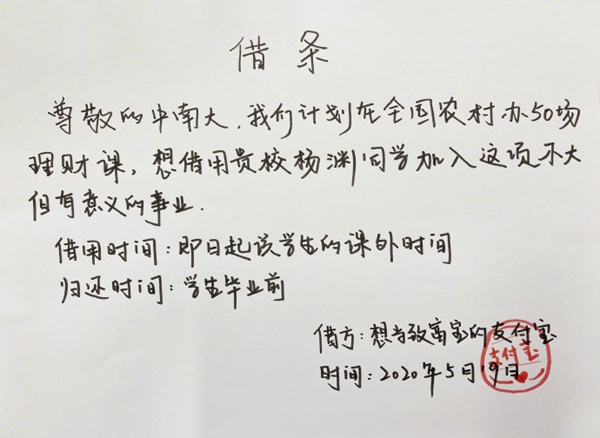 借条
尊敬的中南大，我们计划在全国农村办50场
理财课，想借用贵校杨渊同学加入这项不大
但有意义的事业.
借用时间：即日起该学生的课外时间
归还时间：学生毕业前
借方：想当致富宝的支付宝
时间：2020年5月19日
支付宝